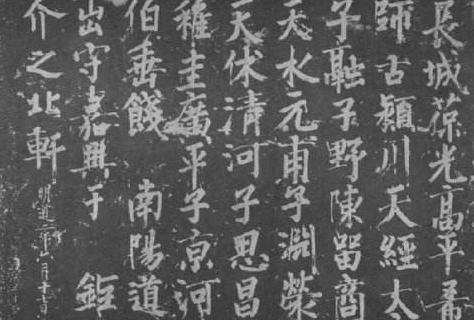 長城葆光高平希
師古潁川天經太
子融子野陳留商
天水元甫子淵榮
天休清河子思昌
稚圭廣平子京河
伯垂餞 南陽道
出守嘉興于 鉅
介之北軒 明道二年月十日